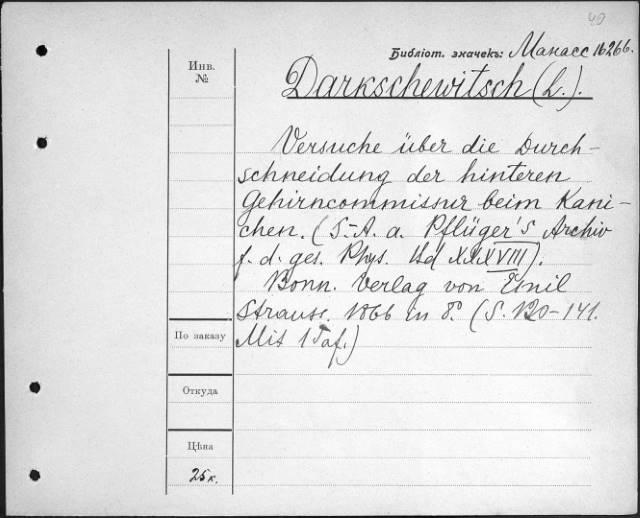 40
Библіот. значекъ: Манасс 16266.
Инв.
№
Darkschewitsch (L.).
Versuche über die Durch-
schneidung der hinteren
Gehirncommissur beim Kani-
chen. (S.-A. a. Pflüger's Archiv
f. d. ges. Phys. Bd XXXVIII).
Bonn. Verlag von Emil
Strauss. 1866 in 8°. (S. 120-141.
Mit 1 Taf.)
По заказу
Откуда
Цѣна
25к.